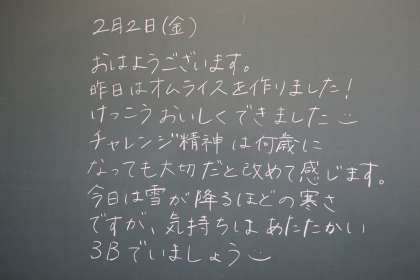 2月2日(金)
おはようございます。
昨日はオムライスを作りました!
けっこうおいしくできました
チャレンジ精神は何歳に
なっても大切だと改めて感じます。
今日は雪が降るほどの寒さ
ですが、気持ちはあたたかい
3Bでいましょう